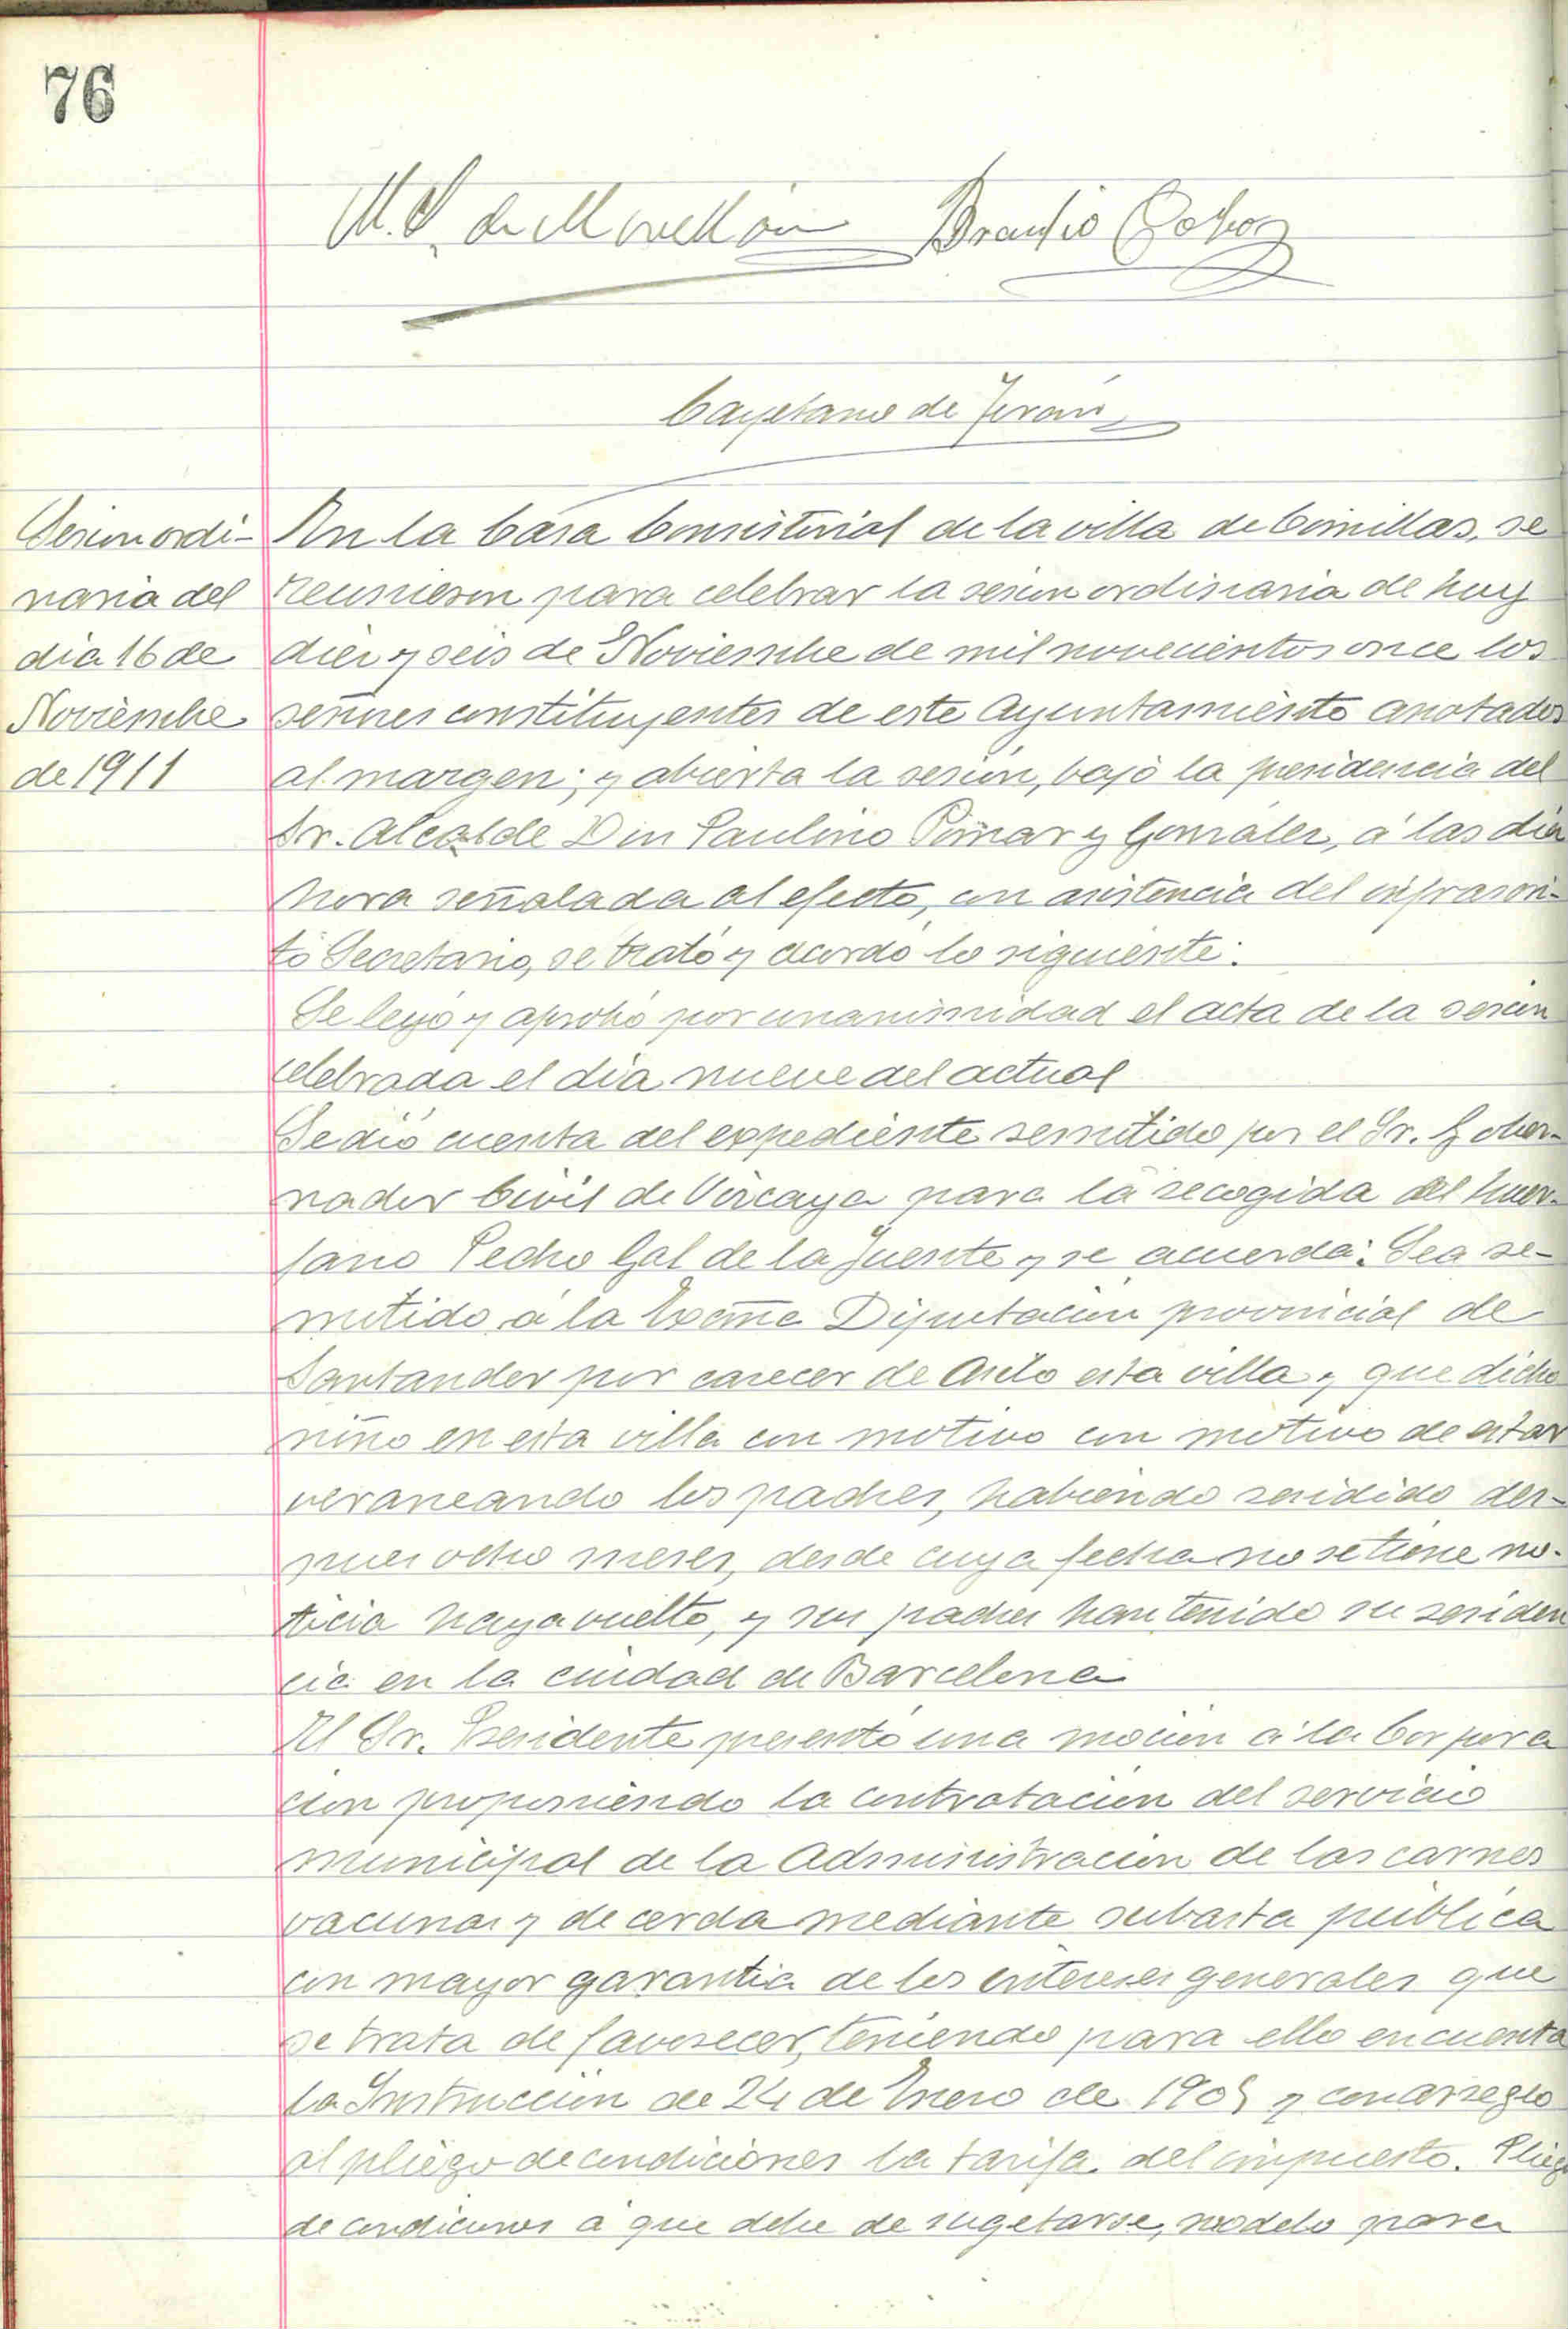 76
M. S. de Movellán Braulio Cobos
Cayetano de Terán
Sesion ordi-
naria del
dia 16 de
Noviembre
de 1911
En la Casa Consistorial de la villa de Comillas, se
reunieron para celebrar la sesion ordinaria de hoy
diez y seis de Noviembre de mil novecientos once los
señores constituyentes de este Ayuntamiento anotados
al margen; y abierta la sesion, bajo la presidencia del
Sr. Alcalde Don Paulino Pomar y Gonzalez, á las diez
hora señalada al efecto, con asistencia del infrascri-
to Secretario, se trató y acordó lo siguiente:
Se leyó y aprobó por unanimidad el acta de la sesion
celebrada el dia nueve del actual
Se dió cuenta del expediente remitido por el Sr. Gober-
nador Civil de Vizcaya para la recogida del huer-
fano Pedro Gal de la Fuente y se acuerda: Sea re-
mitido á la Excma Diputacion provincial de
Santander por carecer de Asilo esta villa y que dicho
niño en esta villa con motivo con motivo de estar
veraneando los padres, habiendo residido des-
pues ocho meses, desde cuya fecha no se tiene no-
ticia haya vuelto, y sus padres han tenido su residen
cia en la ciudad de Barcelona
El Sr. Presidente presentó una mocion á la Corpora
cion proponiendo la contratacion del servicio
municipal de la Administracion de las carnes
vacunas y de cerda mediante subasta publica
con mayor garantia de los intereses generales que
se trata de favorecer, teniendo para ello en cuenta
la Instruccion de 24 de Enero de 1905 y con arreglo
al pliego de condiciones la tarifa del impuesto. Pliego
de condiciones á que debe de sugetarse, modelo para